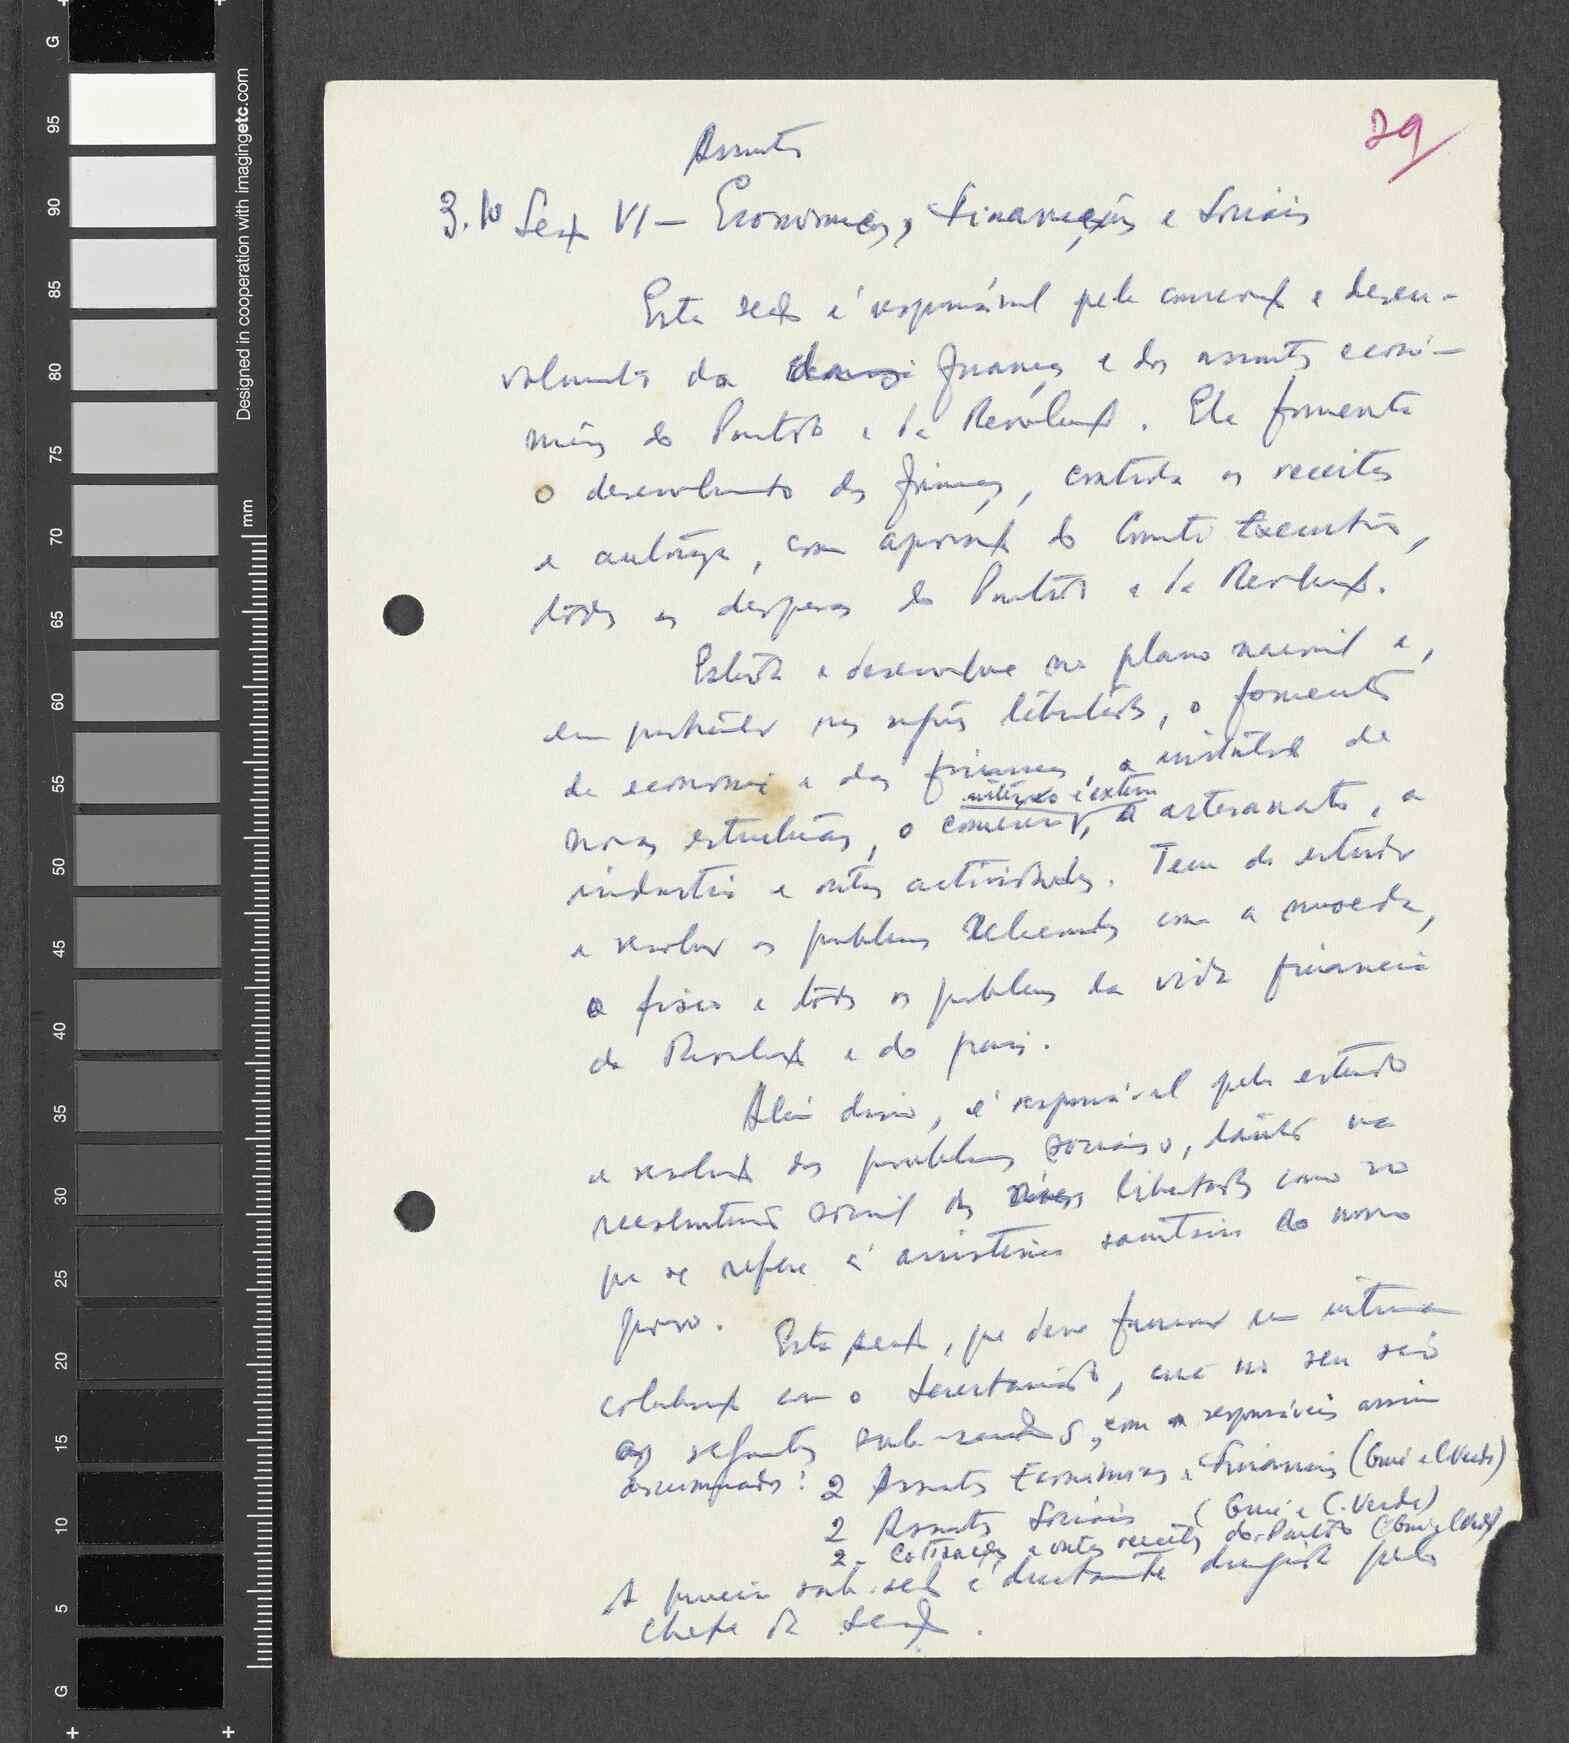 29
Assuntos
3.10 Secção VI – Económicos, Financeiros e Sociais
Esta secção é responsável pela e desen-
volvimento das finanças e dos assuntos econó-
micos do Partido e da Revolução. Ela fomenta
o desenvolvimento das finanças, controla as receitas
e autoriza, com aprovação do Comité Executivo,
todas as despesas do Partido e da Revolução.
Estuda e desenvolve no plano nacional e,
em particular nas regiões libertadas, o fomento
da economia e das finanças, a de
interno e externo
novas estruturas, o comércio, o artesanato, a
indústria e outras actividades. Tem de estudar
e resolver os problemas relacionados com a moeda,
o fisco e todos os problemas da vida financeira
da Revolução e do país.
Além disso, é responsável pelo estudo
e resolução dos problemas sociais, tanto na
social das libertadas como no
que se refere à assistência sanitária do nosso
povo.
Esta secção, que deve funcionar em íntima
colaboração com o Secretariado, cria no seu seio
as seguintes sub-secções, com responsáveis assim
discriminados: 2 Assuntos Económicos e Financeiros (Guiné e C. Verde)
2 Assuntos Sociais (Guiné e C. Verde)
2 – Cotizações e outras receitas do Partido (Guiné e C. Verde)
A primeira sub-secção é directamente dirigida pelo
chefe da Secção.
Designed in cooperation with imagingetc.com
mm
G
95
90
85
80
75
70
65
60
55
50
45
40
35
30
25
20
15
10
5
G